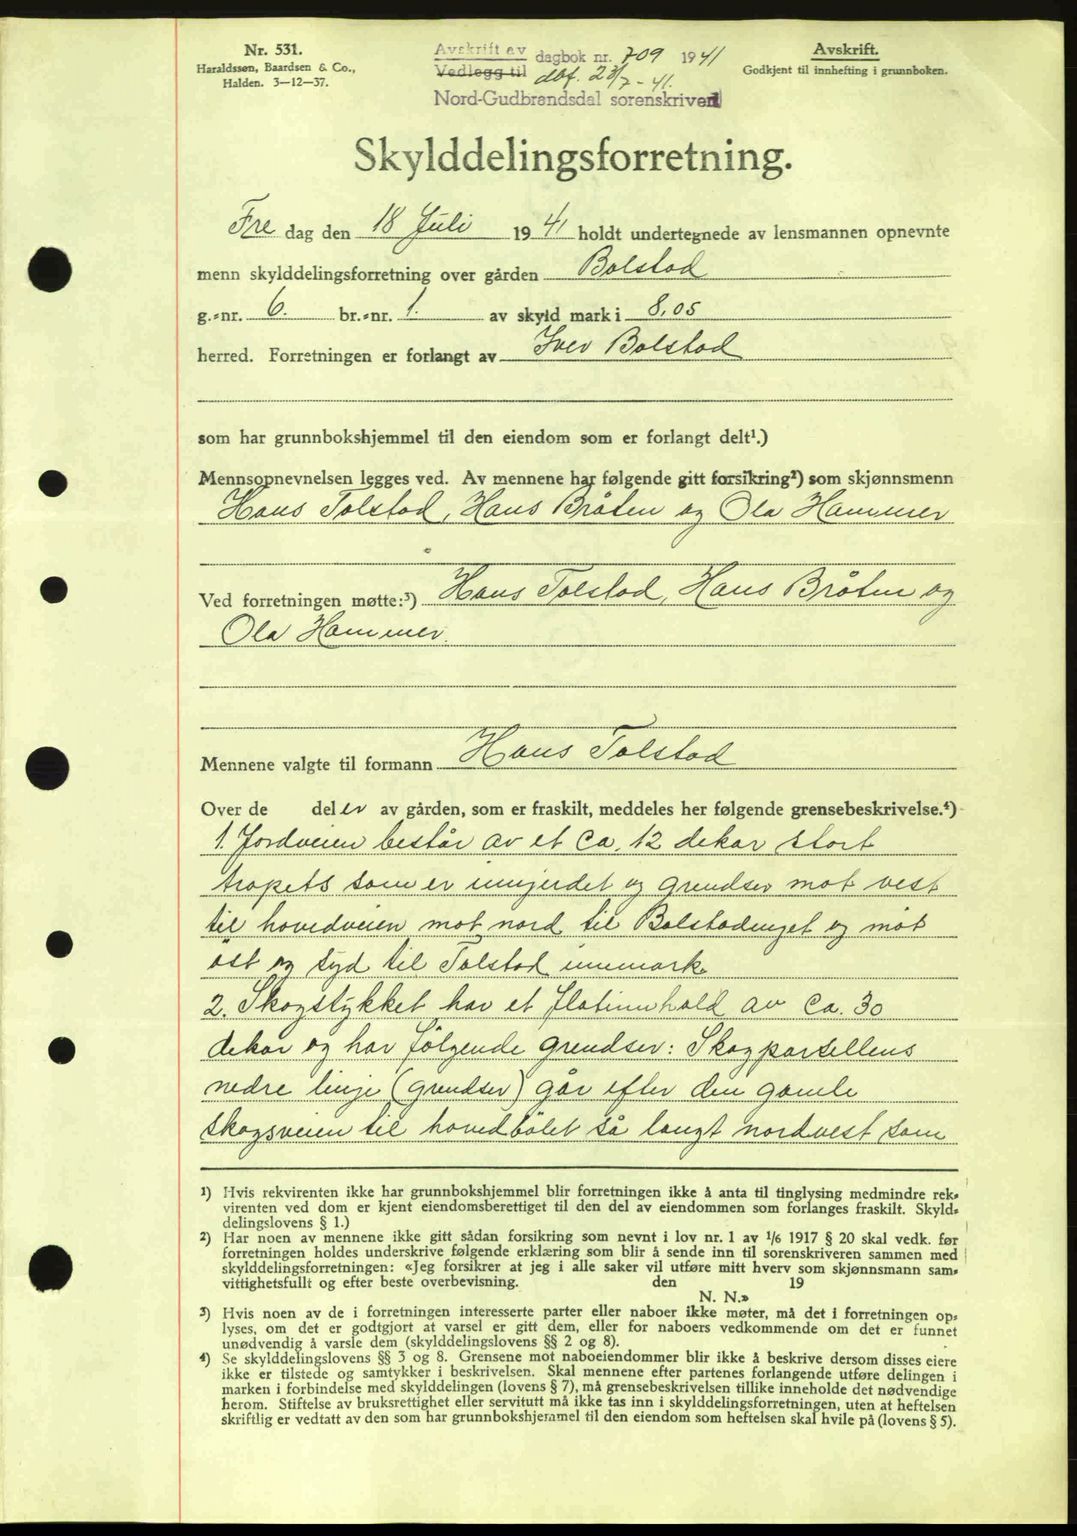 Nr. 531.
Haraldssen, Baardsen & Co.,
Halden. 3—12—37.
Avskrift av dagbok nr. 709 1941
Vedlegg til dbf. 23/7-41.
Nord-Gudbrandsdal sorenskriveri
Avskrift.
Godkjent til innhefting i grunnboken.
Skylddelingsforretning.
Fre dag den 18 Juli 1941 holdt undertegnede av lensmannen opnevnte
menn skylddelingsforretning over gården Bolstad
g.=nr. 6. br.=nr. 1. av skyld mark i 8,05
herred. Forretningen er forlangt av Iver Bolstad
som har grunnbokshjemmel til den eiendom som er forlangt delt¹.)
Mennsopnevnelsen legges ved. Av mennene har følgende gitt forsikring²) som skjønnsmenn
Hans Tolstad, Hans Bråten og Ola Hammer
Ved forretningen møtte:³) Hans Tolstad, Hans Bråten og
Ola Hammer.
Mennene valgte til formann Hans Tolstad
Over de del er av gården, som er fraskilt, meddeles her følgende grensebeskrivelse.⁴)
1. Jordveien består av et ca. 12 dekar stort
trapets som er inngjerdet og grendser mot vest
til hovedveien mot nord til Bolstadenget og mot
øst og syd til Tolstad innmark.
2. Skogstykket har et flatinnhold av ca. 30
dekar og har følgende grendser: Skogparsellens
nedre linje (grendser) går efter den gamle
skogsveien til hovedbölet så langt nordvest som
¹) Hvis rekvirenten ikke har grunnbokshjemmel blir forretningen ikke å anta til tinglysing medmindre rek=
virenten ved dom er kjent eiendomsberettiget til den del av eiendommen som forlanges fraskilt. Skyld=
delingslovens § 1.)
²) Har noen av mennene ikke gitt sådan forsikring som nevnt i lov nr. 1 av 1/6 1917 § 20 skal vedk. før
forretningen holdes underskrive følgende erklæring som blir å sende inn til sorenskriveren sammen med
skylddelingsforretningen: «Jeg forsikrer at jeg i alle saker vil utføre mitt hverv som skjønnsmann sam=
vittighetsfullt og efter beste overbevisning. den 19
N. N.»
³) Hvis noen av de i forretningen interesserte parter eller naboer ikke møter, må det i forretningen op=
lyses, om det er godtgjort at varsel er gitt dem, eller for naboers vedkommende om det er funnet
unødvendig å varsle dem (skylddelingslovens §§ 2 og 8).
⁴) Se skylddelingslovens §§ 3 og 8. Grensene mot naboeiendommer blir ikke å beskrive dersom disses eiere
ikke er tilstede og samtykker i beskrivelsen. Skal mennene efter partenes forlangende utføre delingen i
marken i forbindelse med skylddelingen (lovens § 7), må grensebeskrivelsen tillike inneholde det nødvendige
herom. Stiftelse av bruksrettighet eller servitutt må ikke tas inn i skylddelingsforretningen, uten at heftelsen
skriftlig er vedtatt av den som har grunnbokshjemmel til den eiendom som heftelsen skal hvile på (lovens § 5).